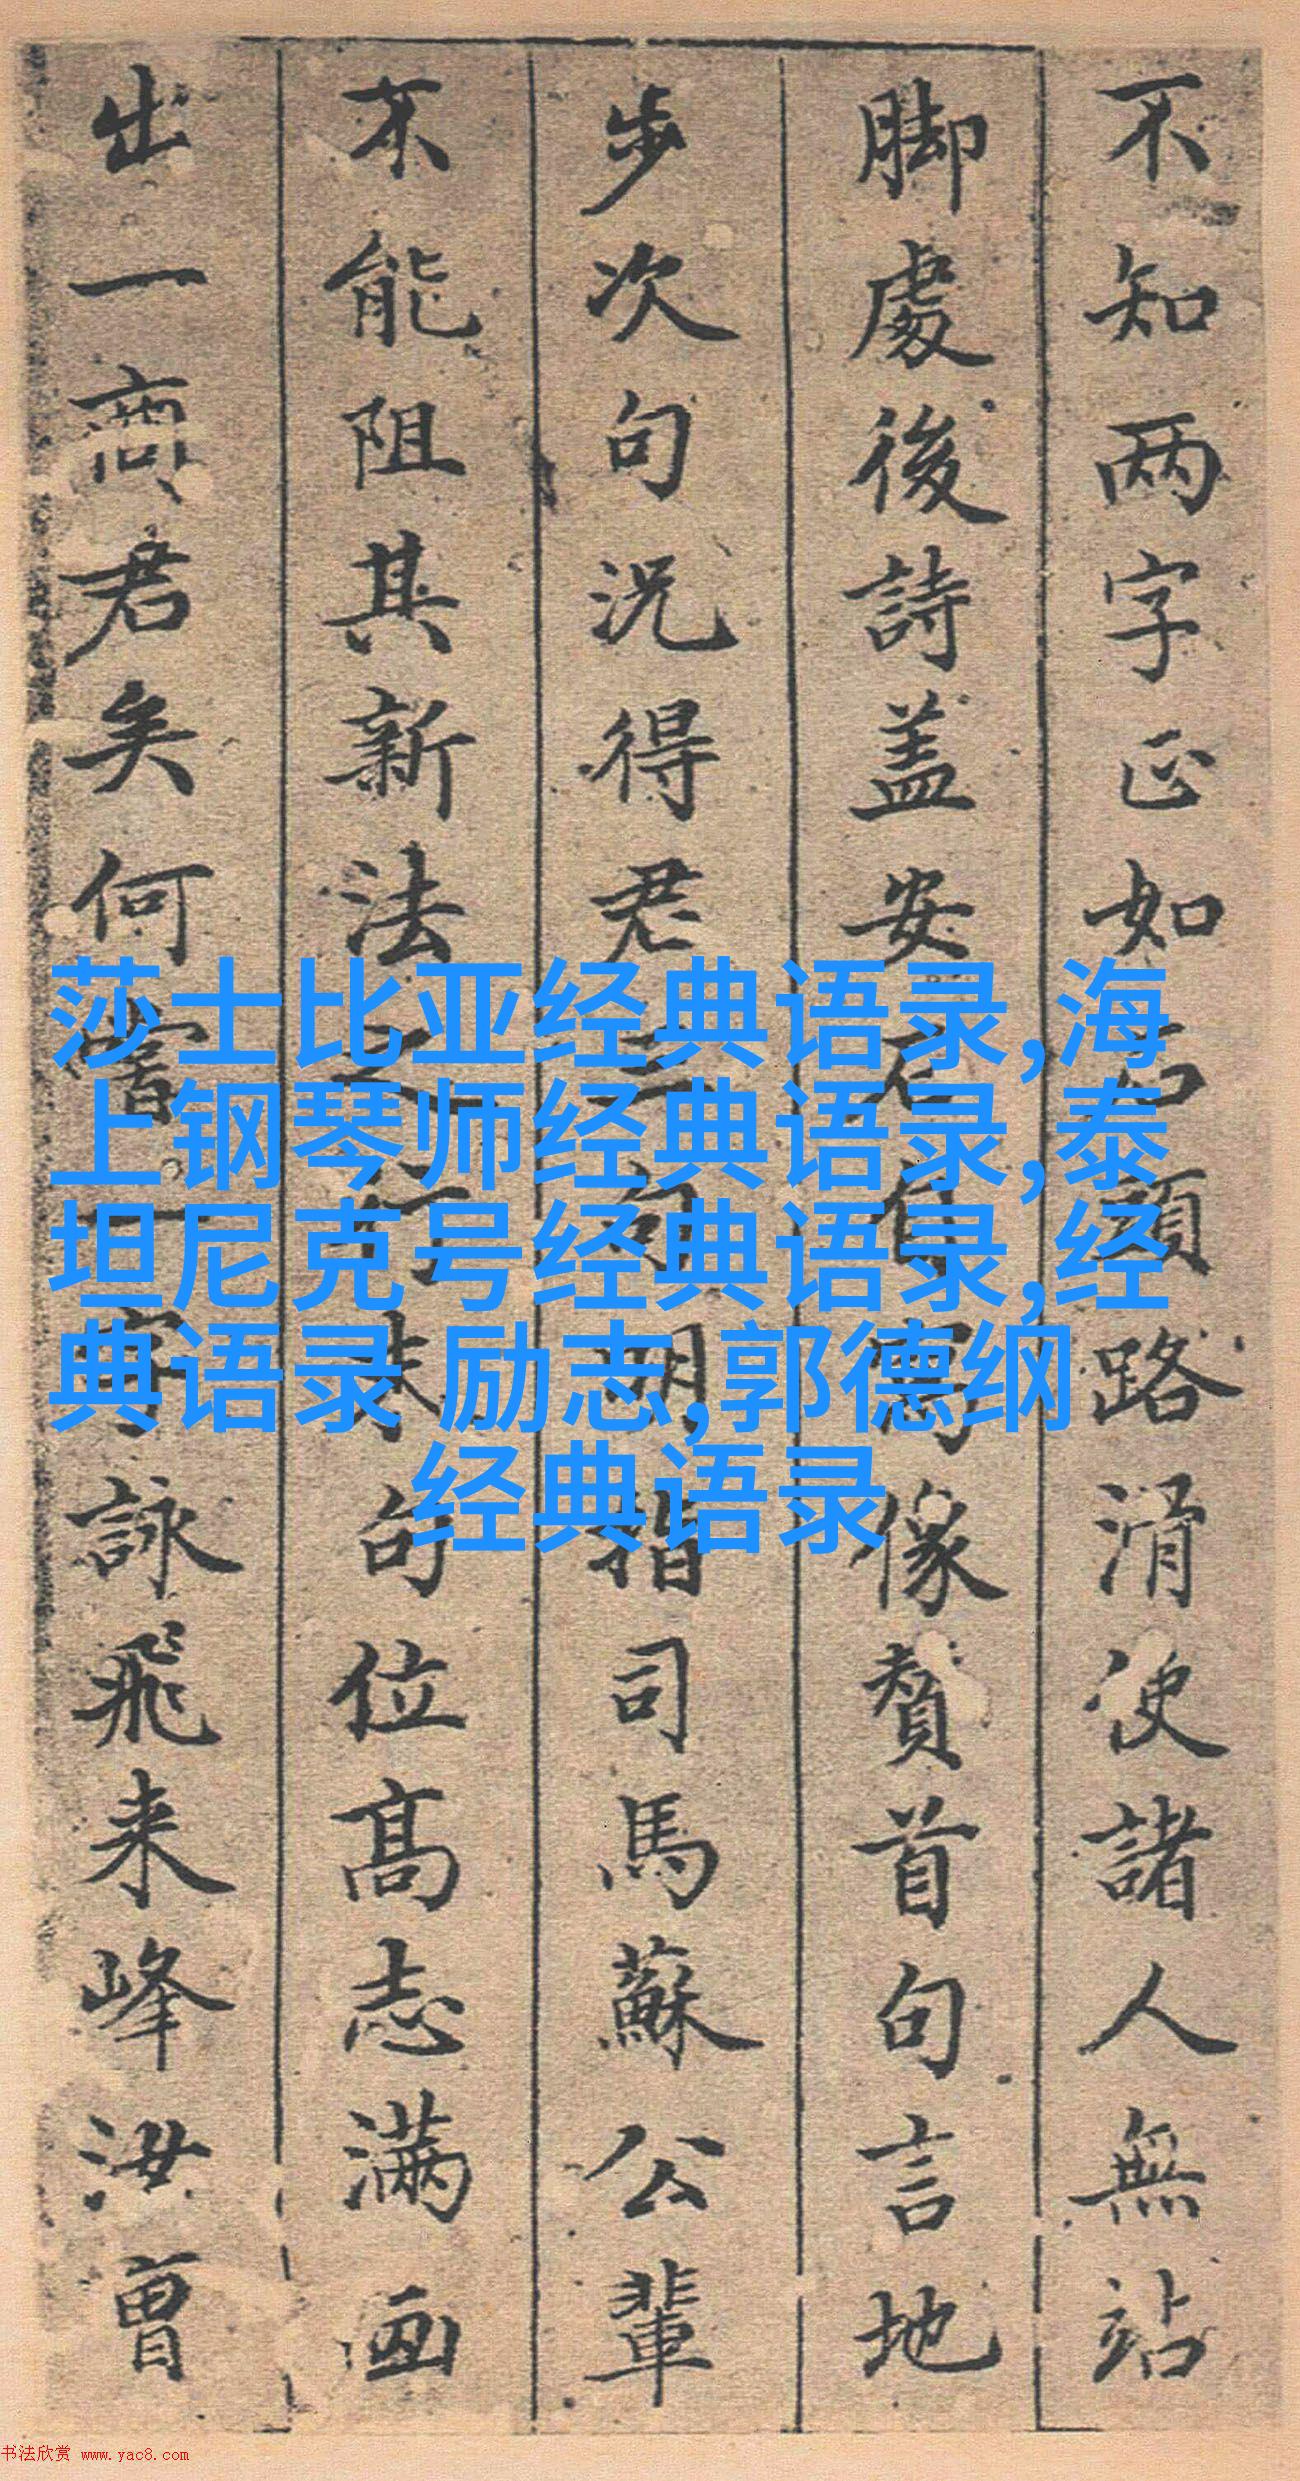 不知两字正如石頭路滑使諸人無站
脚處後詩盖安石寫像贊首句言地
步次句況得君句明指司馬蘇公輩
不能阻其新法之行末句位高志满画
出一商君矣何害一字詠飛来峰汝曾
莎士比亚经典语录,海
上钢琴师经典语录,泰
坦尼克号经典语录,经
典语录 励志,郭德纲
经典语录
书法欣赏 www.yac8.com